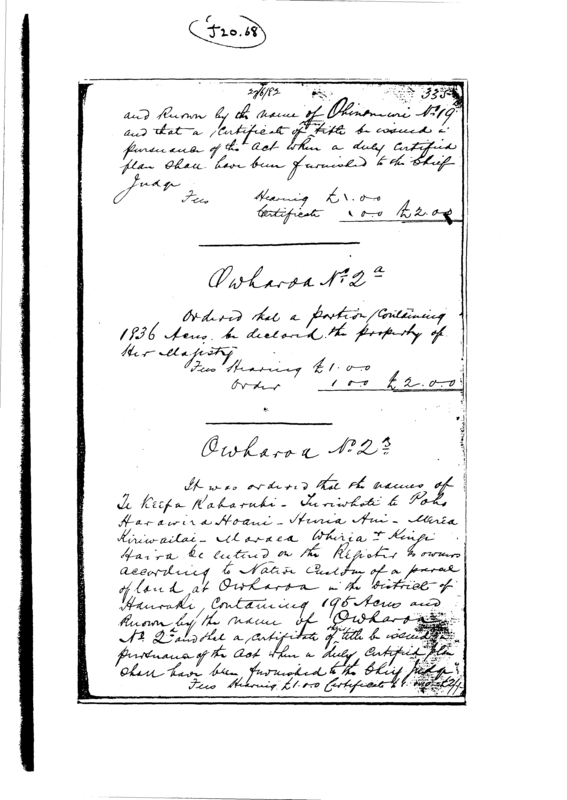 J20.68
27/6/82 335
and known by the name of Ohinemuri No 19
and that a Certificate of title be issued in
pursuance of the Act when a duly Certified
plan shall have been furnished to the Chief
Judge
Fees Hearing £1.0.0
Certificate 1.0.0 £2.0.0
Owharoa No 2a
Ordered that a portion, Containing
1936 Acres be declared the property of
Her Majesty
Fees Hearing £1.0.0
Order 1 0 0 £2.0.0
Owharoa No 2
It was ordered that the names of
Te Keepa Raharuhi - Turiwhati te
Harawira Hoani - Huria - Merea
Kiriwaitai - Maraea Wheria + Kingi
Haira be entered on the Register as owners
according to Native Custom of a parcel
of land at Owharoa in the District of
Hauraki, Containing 195 Acres and
known by the name of Owharoa
No 2 and that a Certificate of title be issued in
pursuance of the Act when a duly Certified plan
shall have been furnished to the Chief Judge
Fees Hearing £1.0.0 Certificate